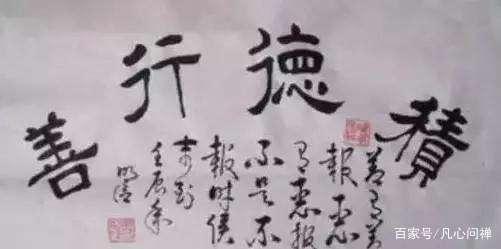 積德行善
善有善
報惡
有惡報
不是不
報時候
未到
壬辰年
百家号/凡心问禅